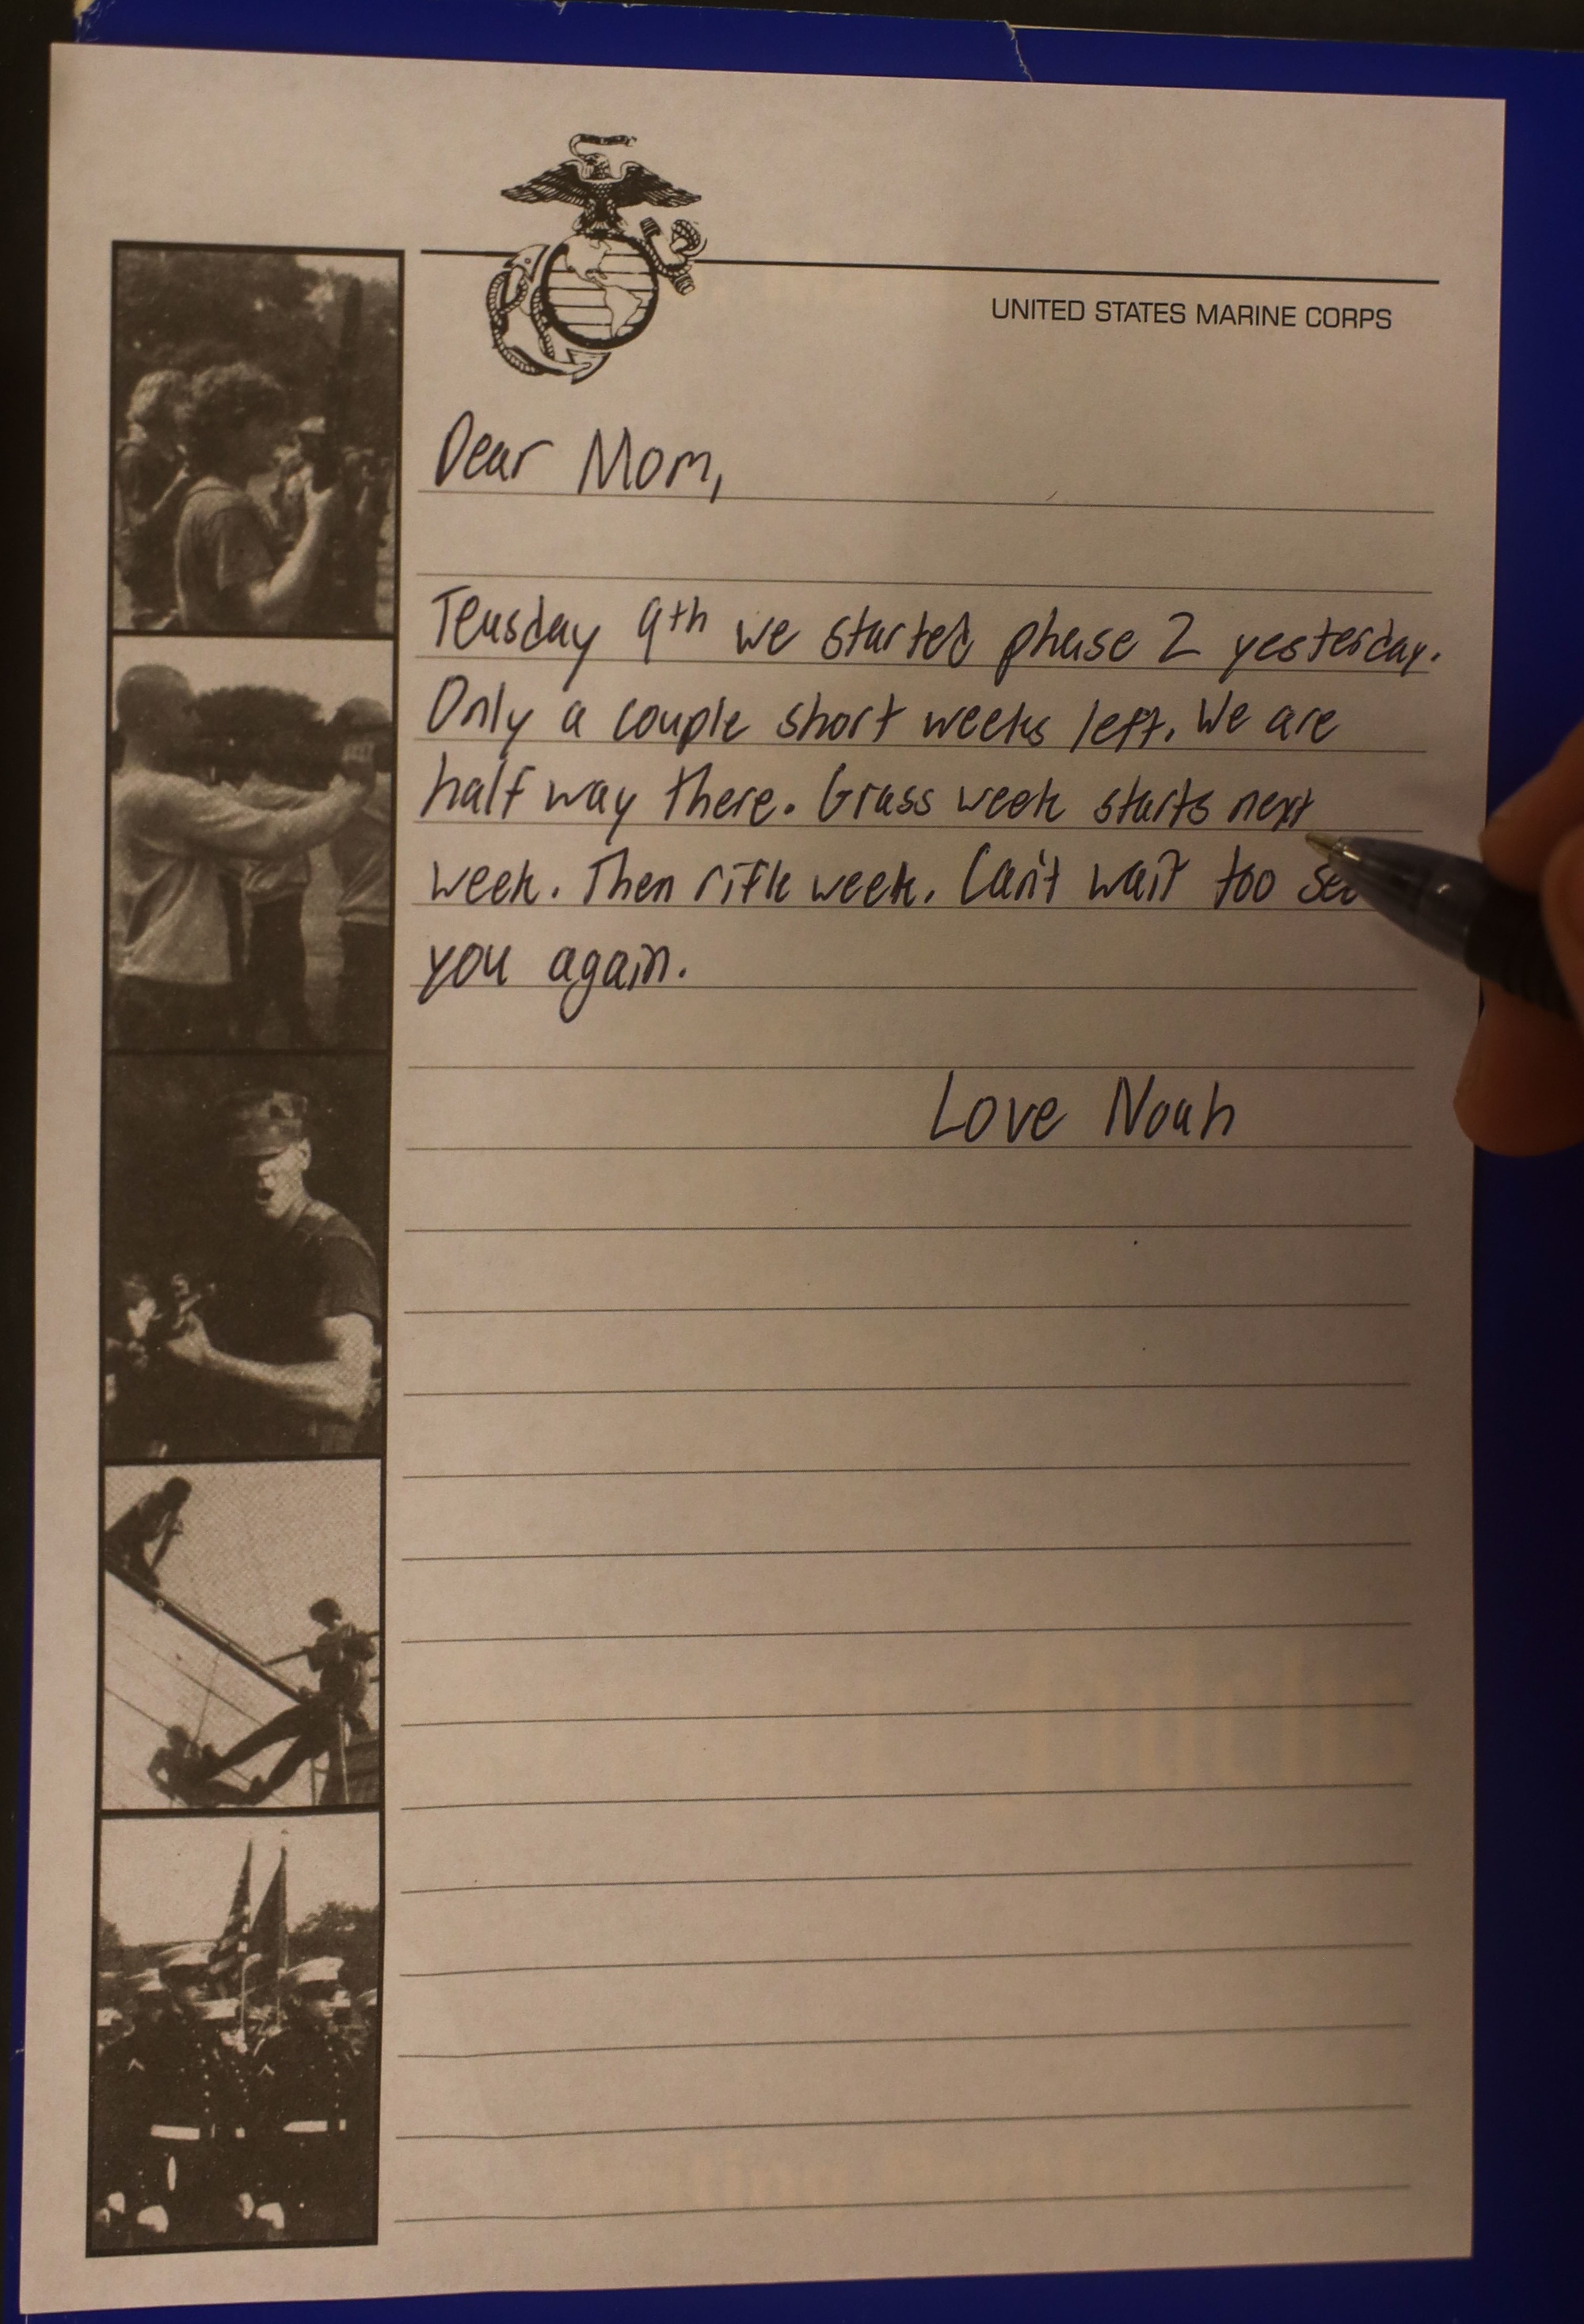 UNITED STATES MARINE CORPS
Dear Mom,
Teusday 9th we started phase 2 yesterday.
Only a couple short weeks left. We are
half way there. Grass week starts next
week. Then rifle week. Can't wait too see
you again.
Love Noah